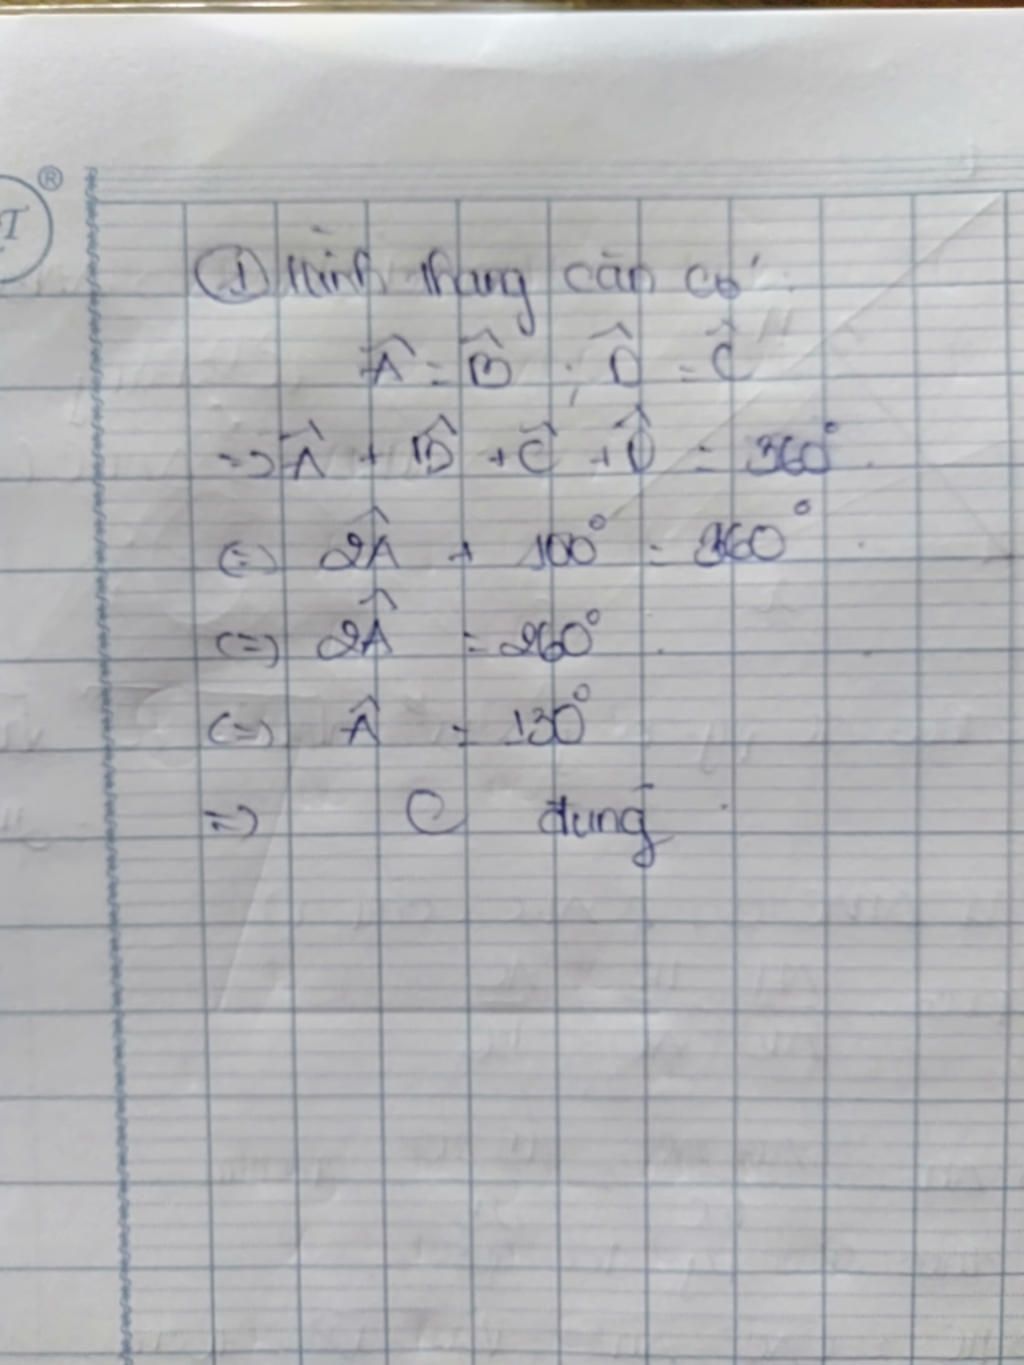 ① Hình thang cân có
Â = B̂ ; D̂ = Ĉ
=> Â + B̂ + Ĉ + D̂ = 360°
(=) 2Â + 100° = 360°
(=) 2Â = 260°
(=) Â = 130°
=> C đúng
®